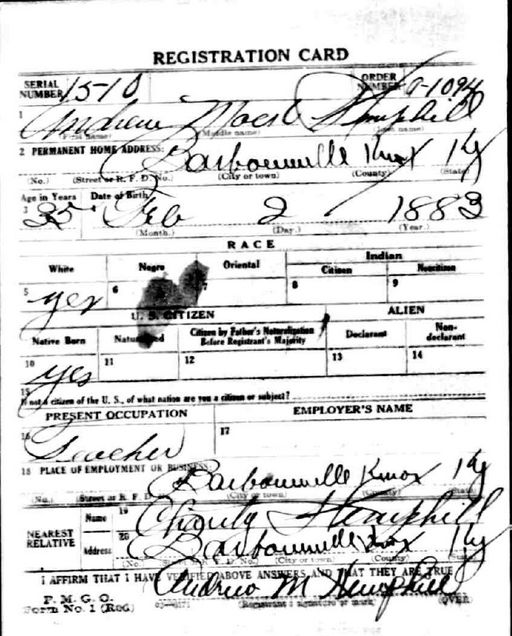 REGISTRATION CARD
SERIAL NUMBER 1510
ORDER NUMBER
1 Andrew Hemphill
(First name) (Middle name) (Last name)
2 PERMANENT HOME ADDRESS: Barbourville Knox Ky
(No.) (Street or R. F. D. No.) (City or town) (County) (State)
Age in Years Date of Birth
3 35 Feb 2 1883
(Month.) (Day.) (Year.)
RACE
White Negro Oriental Indian
Citizen Noncitizen
5 yes 6 7 8 9
U. S. CITIZEN ALIEN
Native Born Naturalized Citizen by Father's Naturalization Before Registrant's Majority Declarant Non-declarant
10 yes 11 12 13 14
15
If not a citizen of the U. S., of what nation are you a citizen or subject?
PRESENT OCCUPATION EMPLOYER'S NAME
16 Teacher 17
18 PLACE OF EMPLOYMENT OR BUSINESS:
Barbourville Knox Ky
(No.) (Street or R. F. D. No.) (City or town) (County) (State)
NEAREST RELATIVE
Name 19 Charity Hemphill
Address 20 Barbourville Knox Ky
(No.) (Street or R. F. D. No.) (City or town) (County) (State)
I AFFIRM THAT I HAVE VERIFIED ABOVE ANSWERS AND THAT THEY ARE TRUE
P. M. G. O.
Form No. 1 (Red) Andrew M Hemphill
(Registrant's signature or mark) (OVER)